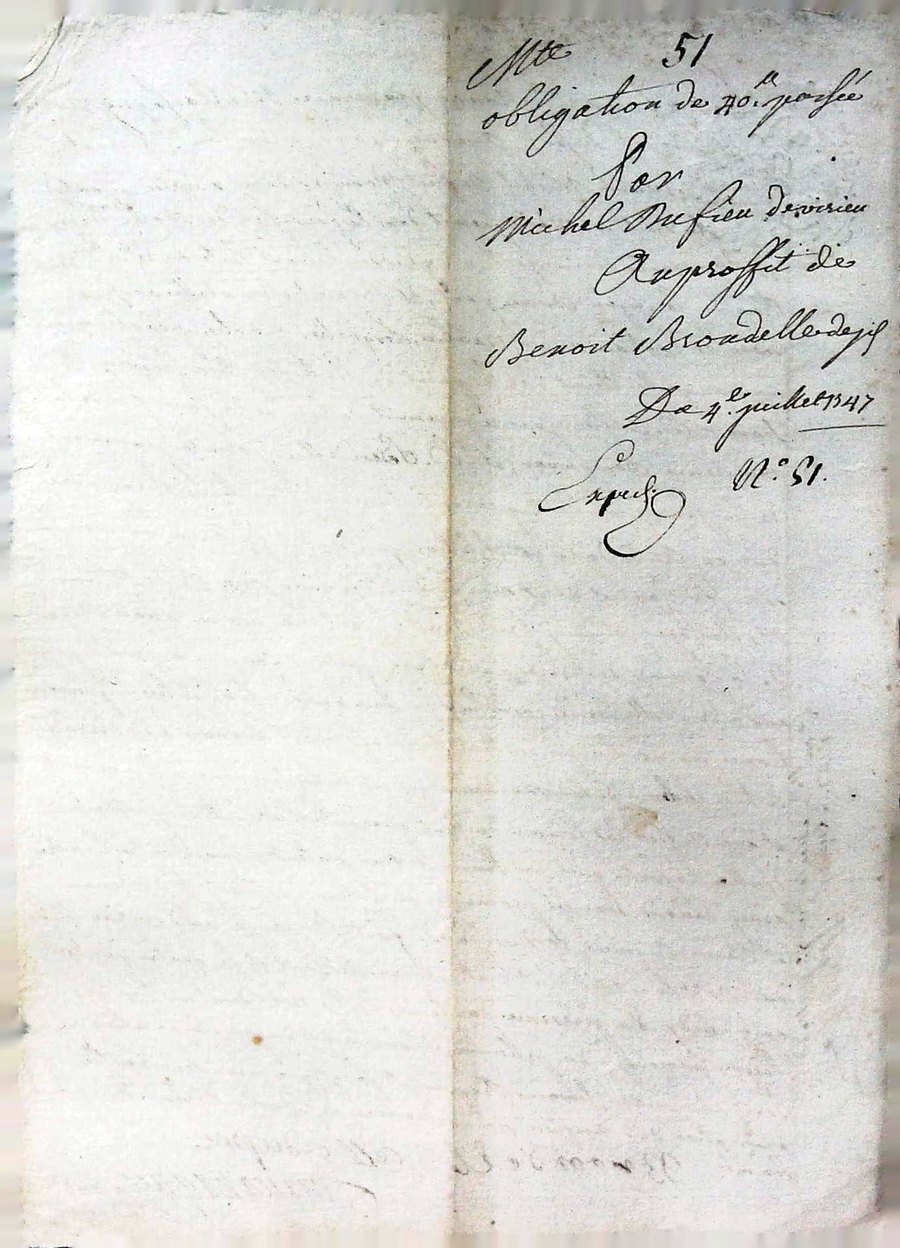 Mte 51
obligation de 40.ᵗᵗ passée
Par
Michel Dufieu de virieu
Au proffit de
Benoit Brondelle
Du 4.e juillet 1747
Exped. N.° 51.